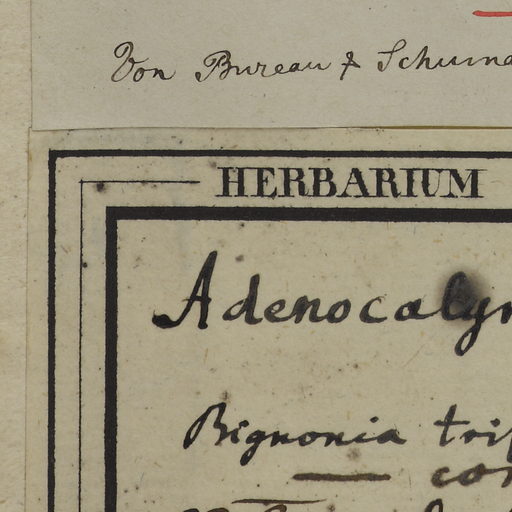 Von Bureau & Schuma
HERBARIUM
Adenocalyn
Bignonia trif
— con